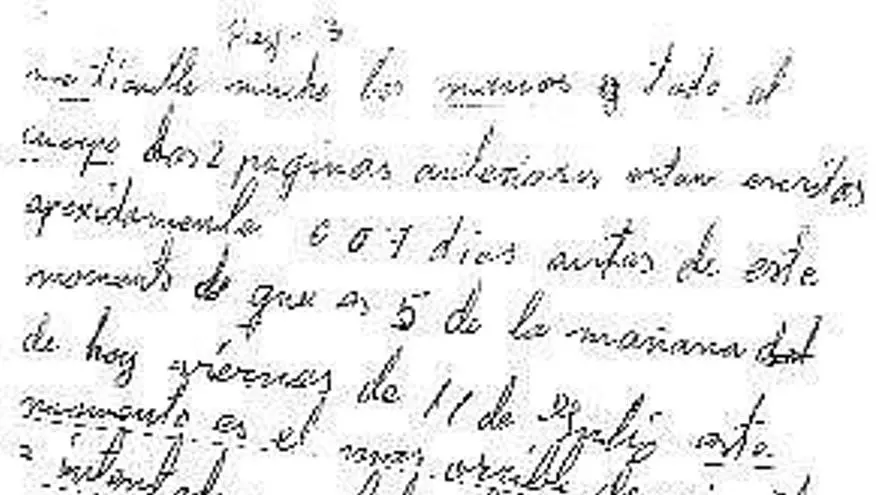 Pag. 3
me tiemble mucho las manos y todo el
cuerpo las 2 paginas anteriores estan escritas
apoxidamente 6 o 7 dias antes de este
momento de que es 5 de la mañana
de hoy viernes de 11 de Julio este
momento es el mas orrible de
intentado